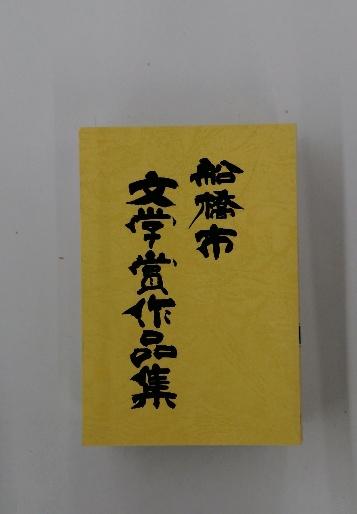 船橋市
文学賞作品集